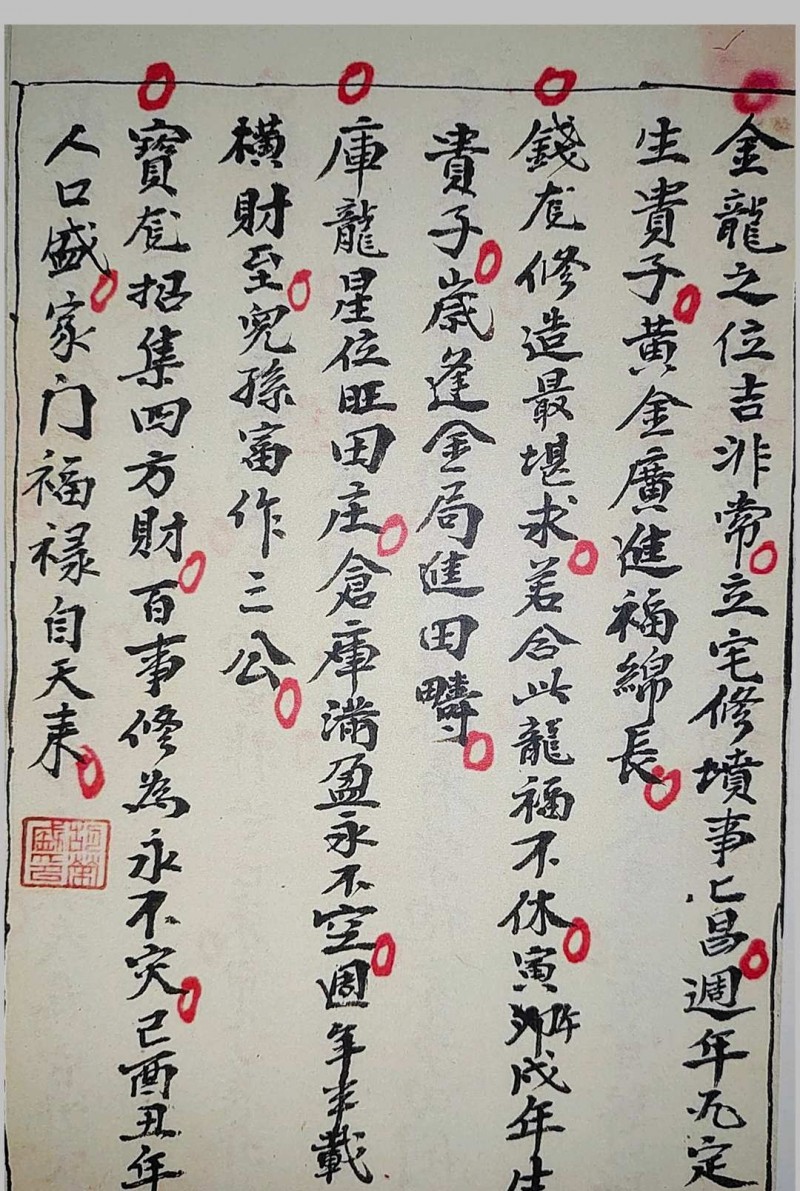 金龍之位吉非常立宅修墳事匕昌週年九定
生貴子黃金廣進福綿長
錢龙修造最堪求若合此龍福不休寅卯戌年生
貴子歲逢金局進田疇
庫龍星位旺田庄倉庫滿盈永不空週年半載
橫財至兒孫富作三公
寶龙招集四方財百事修為永不灾己酉丑年
人口盛家门福禄自天来